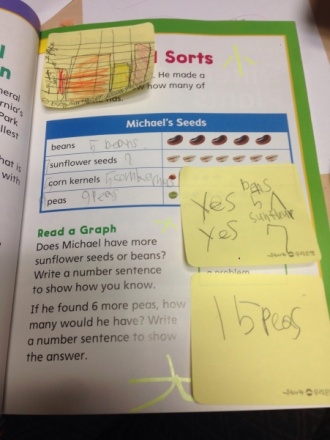 l Sorts
. He made a
how many of
has.
Michael's Seeds
beans 5 beans
sunflower seeds 7
corn kernels
peas 9 Peas
Read a Graph
Does Michael have more
sunflower seeds or beans?
Write a number sentence
to show how you know.
If he found 6 more peas, how
many would he have? Write
a number sentence to show
the answer.
beans
yes 5
sunflower
yes 7
a problem
15 Peas
neral
rnia's
Park
llest
hat is
with